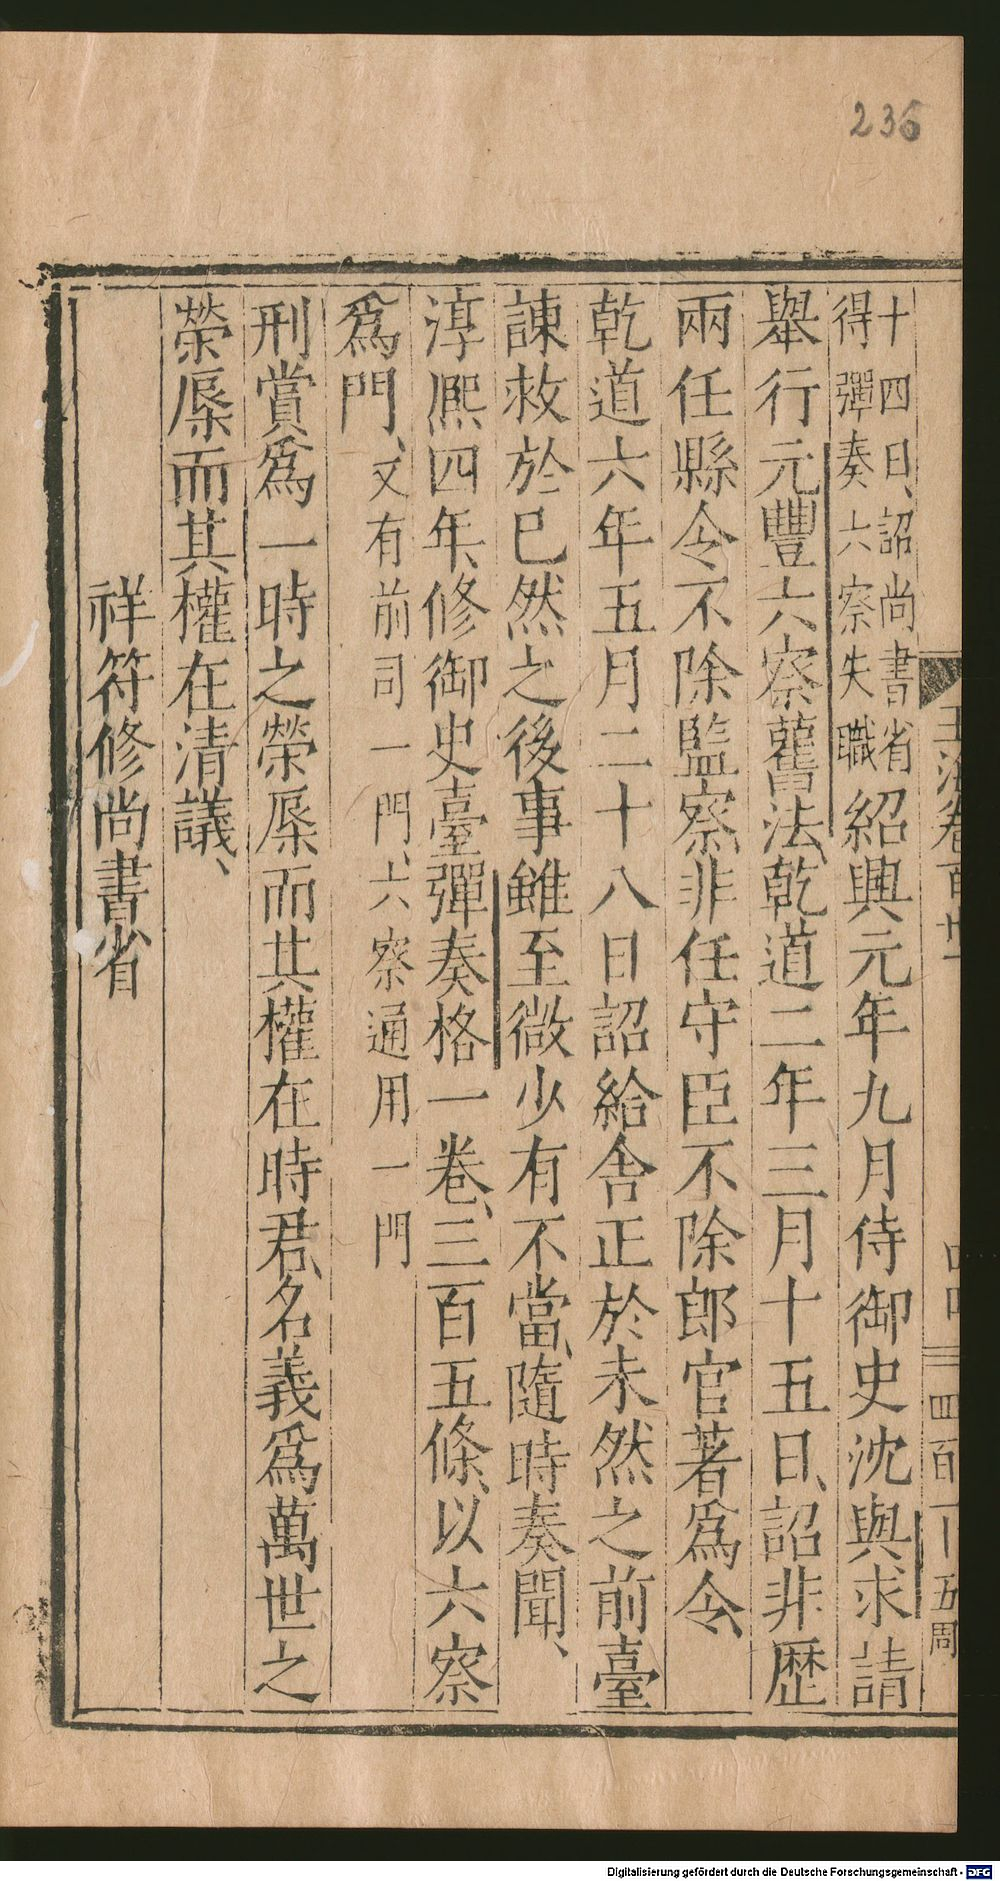 236
十四日、詔尚書省
得彈奏六察失職
紹興元年九月侍御史沈與求請
舉行元豐六察舊法、乾道二年三月十五日、詔非歷
兩任縣令不除監察、非任守臣不除郎官著爲令、
乾道六年五月二十八日詔給舍正於未然之前臺
諫救於已然之後事雖至微少有不當、隨時奏聞、
淳熙四年、修御史臺彈奏格一卷、三百五條、以六察
爲門、又有前司一門、六察通用一門
刑賞爲一時之榮辱而其權在時君、名義爲萬世之
榮辱而其權在清議、
祥符修尚書省
玉海卷百廿一
四百
五周
Digitalisierung gefördert durch die Deutsche Forschungsgemeinschaft - DFG